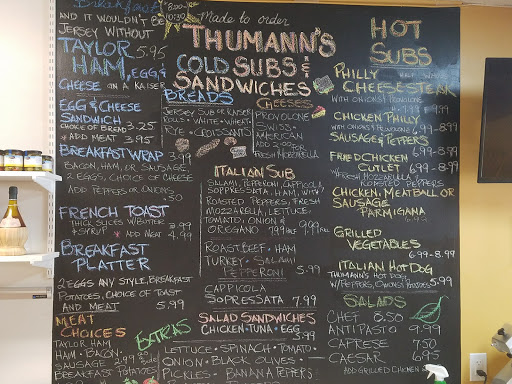 Breakfast
AND IT WOULDN'T BE
JERSEY WITHOUT
TAYLOR 5.95
HAM, EGG &
CHEESE ON A KAISER
EGG & CHEESE
SANDWICH
CHOICE OF BREAD 3.25
* ADD MEAT 3.95
BREAKFAST WRAP 3.99
BACON, HAM, OR SAUSAGE
2 EGGS, CHOICE OF CHEESE
ADD PEPPERS OR ONIONS
.50
FRENCH TOAST
THICK SLICES W/BUTTER 3.99
& SYRUP * ADD MEAT 4.99
BREAKFAST
PLATTER
2 EGGS ANY STYLE, BREAKFAST
POTATOES, CHOICE OF TOAST
AND MEAT 5.99
MEAT
CHOICES
TAYLOR HAM
HAM • BACON
SAUSAGE
EXTRAS
2.99
BREAKFAST POTATOES
Made to order
THUMANN'S
COLD SUBS &
SANDWICHES
BREADS
JERSEY SUB OR KAISER
ROLLS • WHITE • WHEAT
RYE • CROISSANTS
CHEESES
PROVOLONE
SWISS
AMERICAN
ADD 2.00 FOR
FRESH MOZZARELLA
ITALIAN SUB
SALAMI, PEPPERONI, CAPPICOLA
SOPRESSATA HAM, WITH
ROASTED PEPPERS, FRESH
MOZZARELLA, LETTUCE,
TOMATO, ONION &
OREGANO 7.99 HALF 9.99 FULL
ROAST BEEF • HAM
TURKEY • SALAMI
PEPPERONI 5.99
CAPPICOLA
SOPRESSATA 7.99
SALAD SANDWICHES
CHICKEN • TUNA • EGG
5.99
LETTUCE • SPINACH • TOMATO •
ONION • BLACK OLIVES •
PICKLES • BANANA PEPPERS
HOT
SUBS
PHILLY
CHEESESTEAK
WITH ONIONS & PROVOLONE
CHICKEN PHILLY
WITH ONIONS & PROVOLONE 6.99-8.99
SAUSAGE & PEPPERS
6.99-8.99
FRIED CHICKEN
CUTLET 6.99-8.99
W/FRESH MOZZARELLA &
ROASTED PEPPERS
CHICKEN, MEATBALL OR
SAUSAGE
PARMIGIANA
GRILLED
VEGETABLES
6.99-8.99
ITALIAN HOT DOG
THUMANN'S HOT DOG
W/PEPPERS, ONIONS & POTATOES 5.99
SALADS
CHEF 8.50
ANTIPASTO 9.99
CAPRESE 7.50
CAESAR 6.95
ADD GRILLED CHICKEN